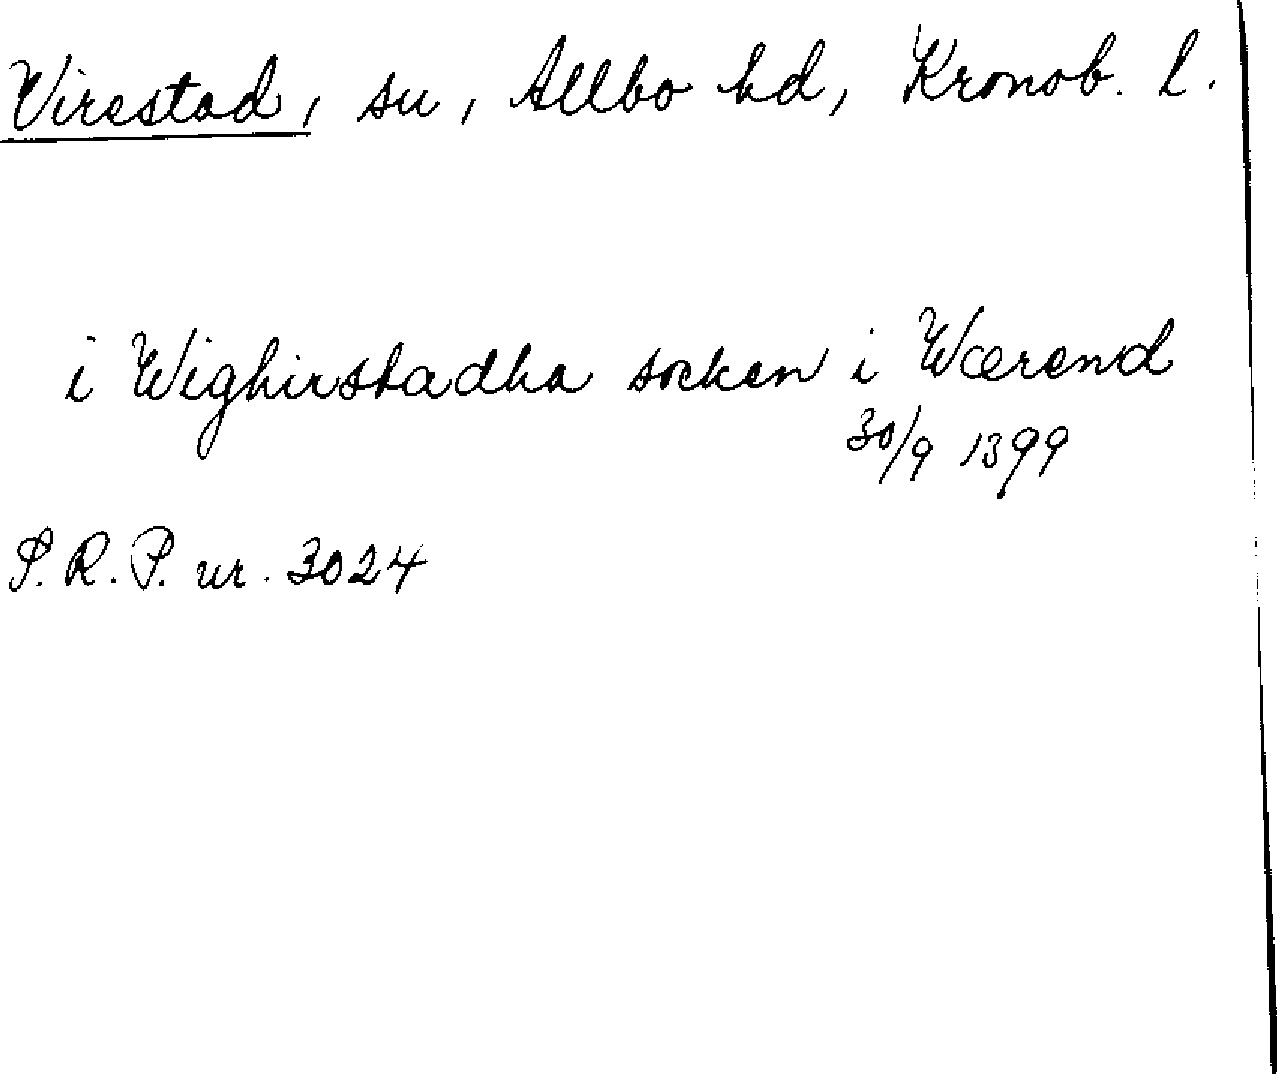 Virestad, sn, Allbo hd, Kronob. l.
i Wighirstadha socken i Wærend
30/9 1399
S.R.P. nr. 3024